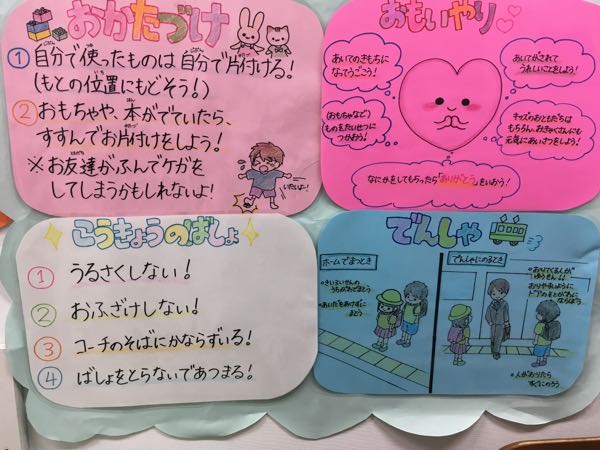 おかたづけ
① 自分で使ったものは自分で片付ける!
(もとの位置にもどそう!)
② おもちゃや、本がでていたら、
すすんでお片付けをしよう!
※お友達がふんでケガを
してしまうかもしれないよ!
いたいよー!
おもいやり
あいてのきもちに
なってうごこう!
あいてがされて
うれしいことをしよう!
(おもちゃなど)
ものをたいせつに
つかおう!
キッズのおともだちは
もちろん、おきゃくさんにも
元気にあいさつをしよう!
なにかをしてもらったら「ありがとう」をいおう!
こうきょうのばしょ
① うるさくしない!
② おふざけしない!
③ コーチのそばにかならずいる!
④ ばしょをとらないであつまる!
でんしゃ
ホームでまつとき
・きいろいせんの
うちがわでまとう
・あいだをあけずに
まとう
でんしゃにのるとき
・おりてくる人が
ゆうせん!!
おりやすいように
ドアの
ならぼう
・人がおりたら
すぐにのろう